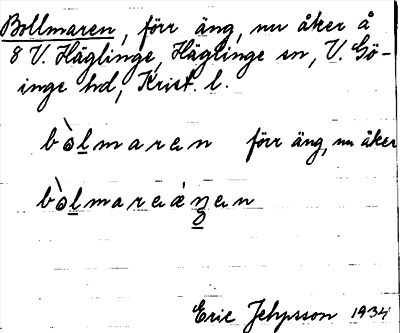 Bollmaren, förr äng, nu åker å
8 V. Häglinge, Häglinge sn, V. Gö-
inge hd, Krist. l.
bòlmaren förr äng, nu åker
bòlmaraáŋan
Eric Jehpsson 1934